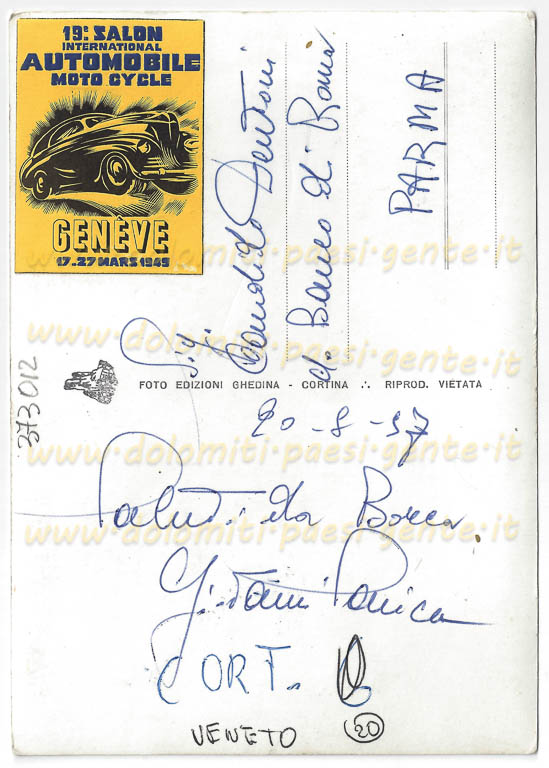 19e SALON
INTERNATIONAL
AUTOMOBILE
MOTO CYCLE
GENÈVE
17-27 MARS 1949
Sig.
Candido Dentoni
Banco di Roma
PARMA
www.dolomiti-paesi-gente.it
www.dolomiti-paesi-gente.it
FOTO EDIZIONI GHEDINA - CORTINA ∴ RIPROD. VIETATA
373012
20-8-57
www.dolomiti-paesi-gente.it
Saluti da Borca
www.dolomiti-paesi-gente.it
CORT.
VENETO
20